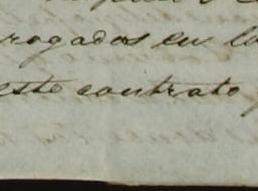 rogados en la
este contrato